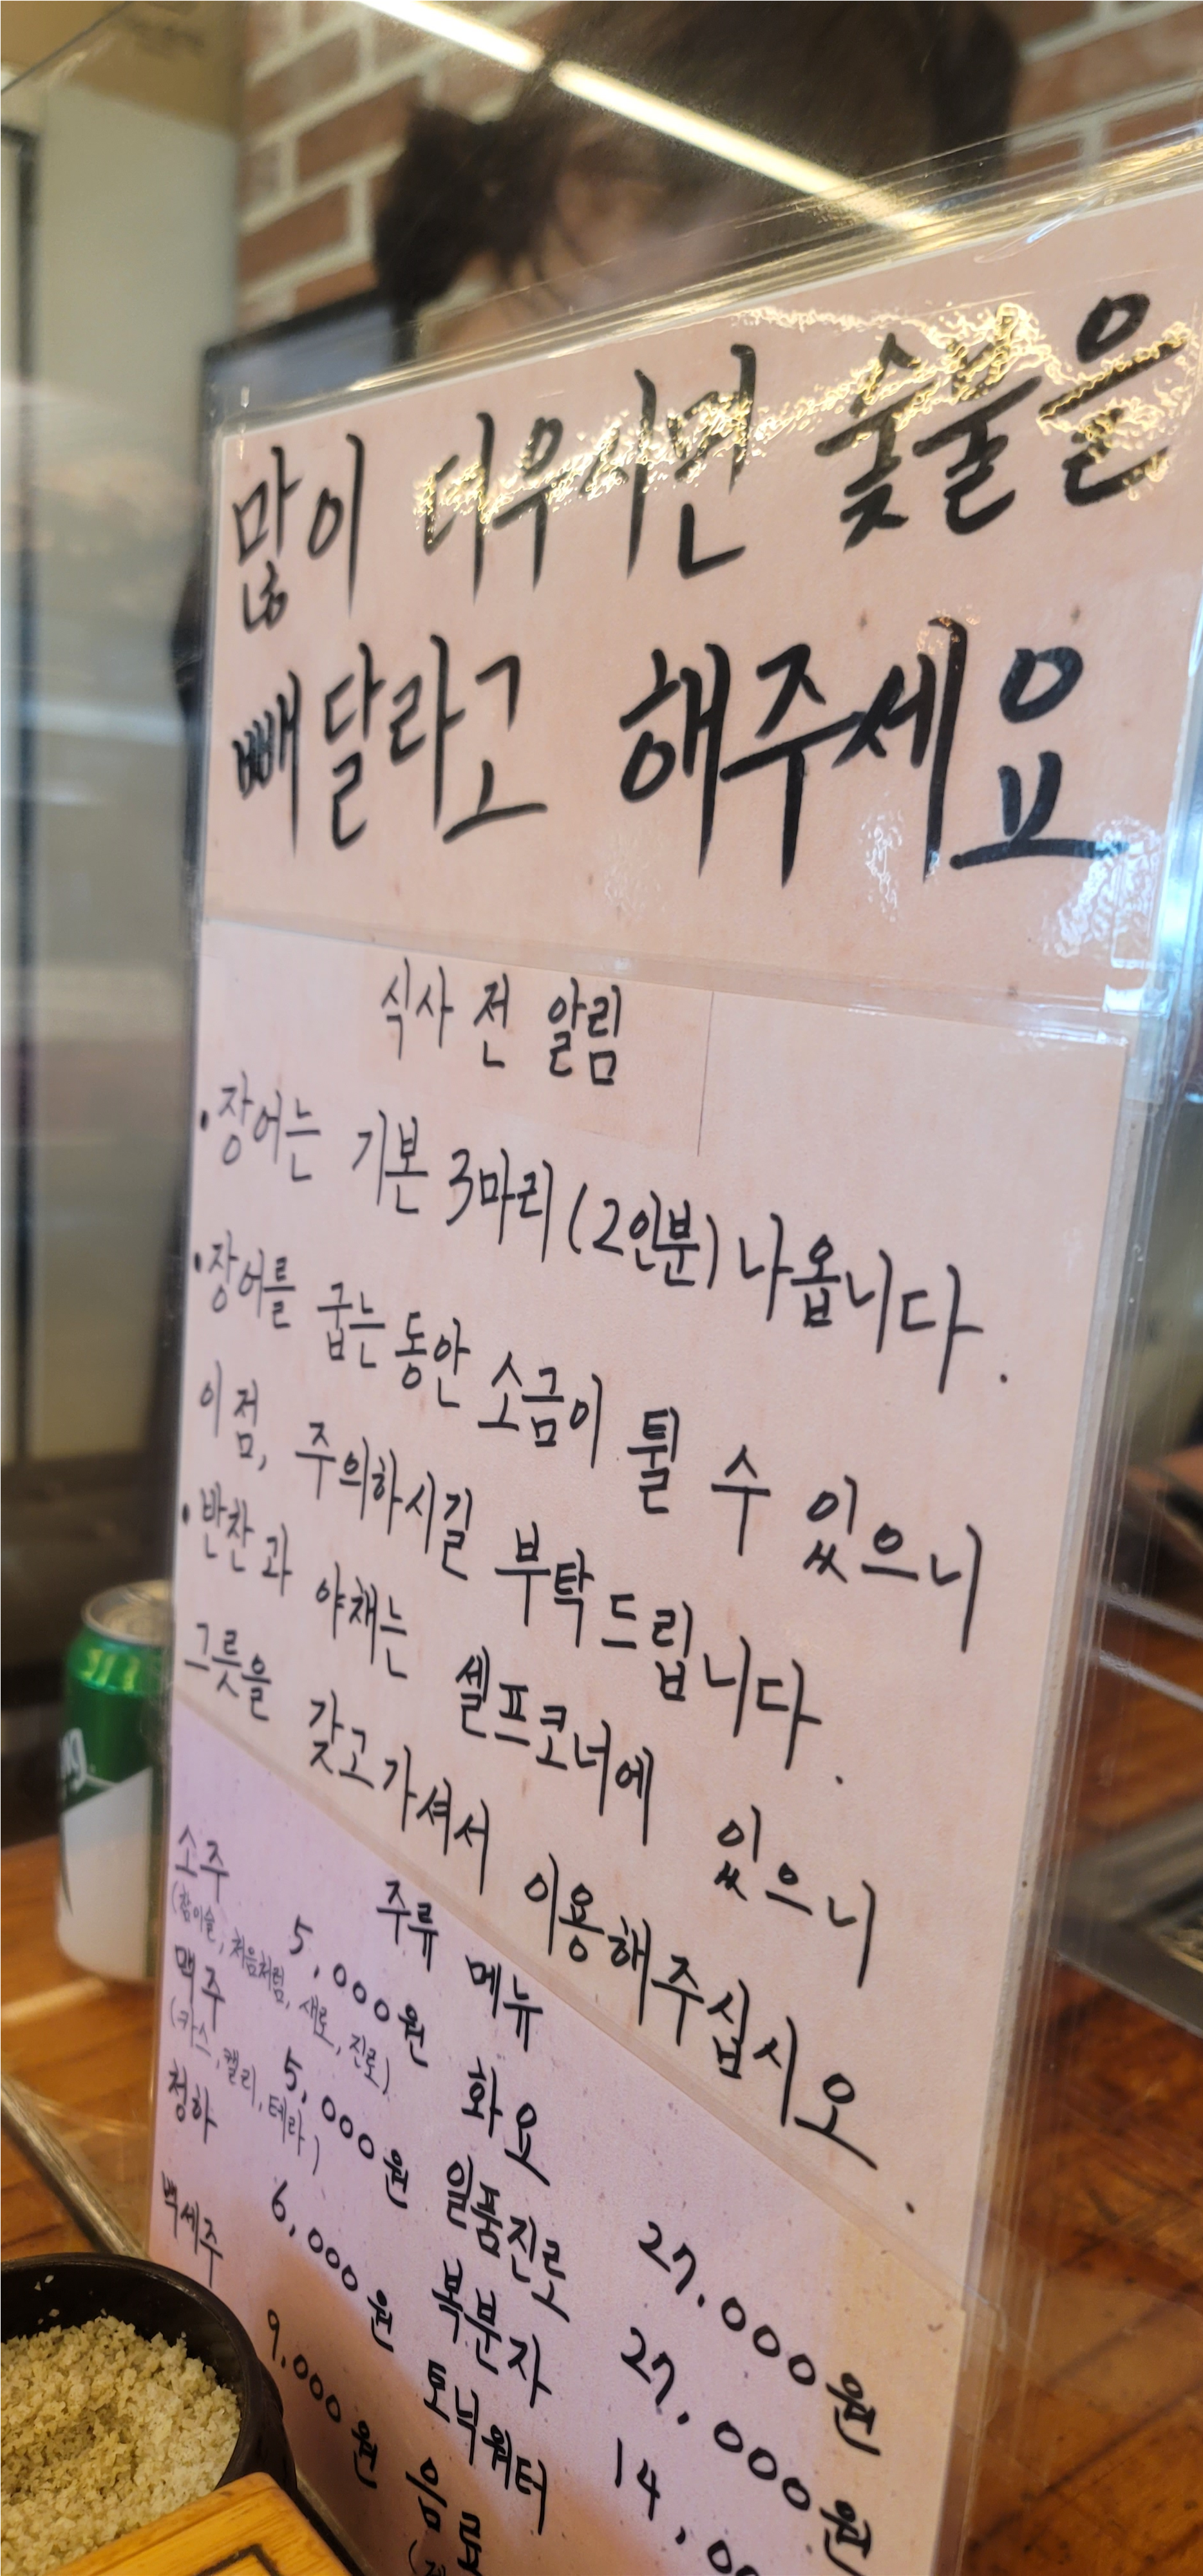 많이 더우시면 숯불을
빼 달라고 해주세요
식사 전 알림
• 장어는 기본 3마리 (2인분) 나옵니다.
• 장어를 굽는 동안 소금이 튈 수 있으니
이 점, 주의하시길 부탁드립니다.
• 반찬과 야채는 셀프코너에 있으니
그릇을 갖고가셔서 이용해주십시오.
주류 메뉴
소주 5,000원
(참이슬, 처음처럼, 새로, 진로)
맥주 5,000원
(카스, 켈리, 테라)
청하 6,000원
백세주 9,000원
화요 27.000원
일품진로 27,000원
복분자 14,00
토닉워터
음료